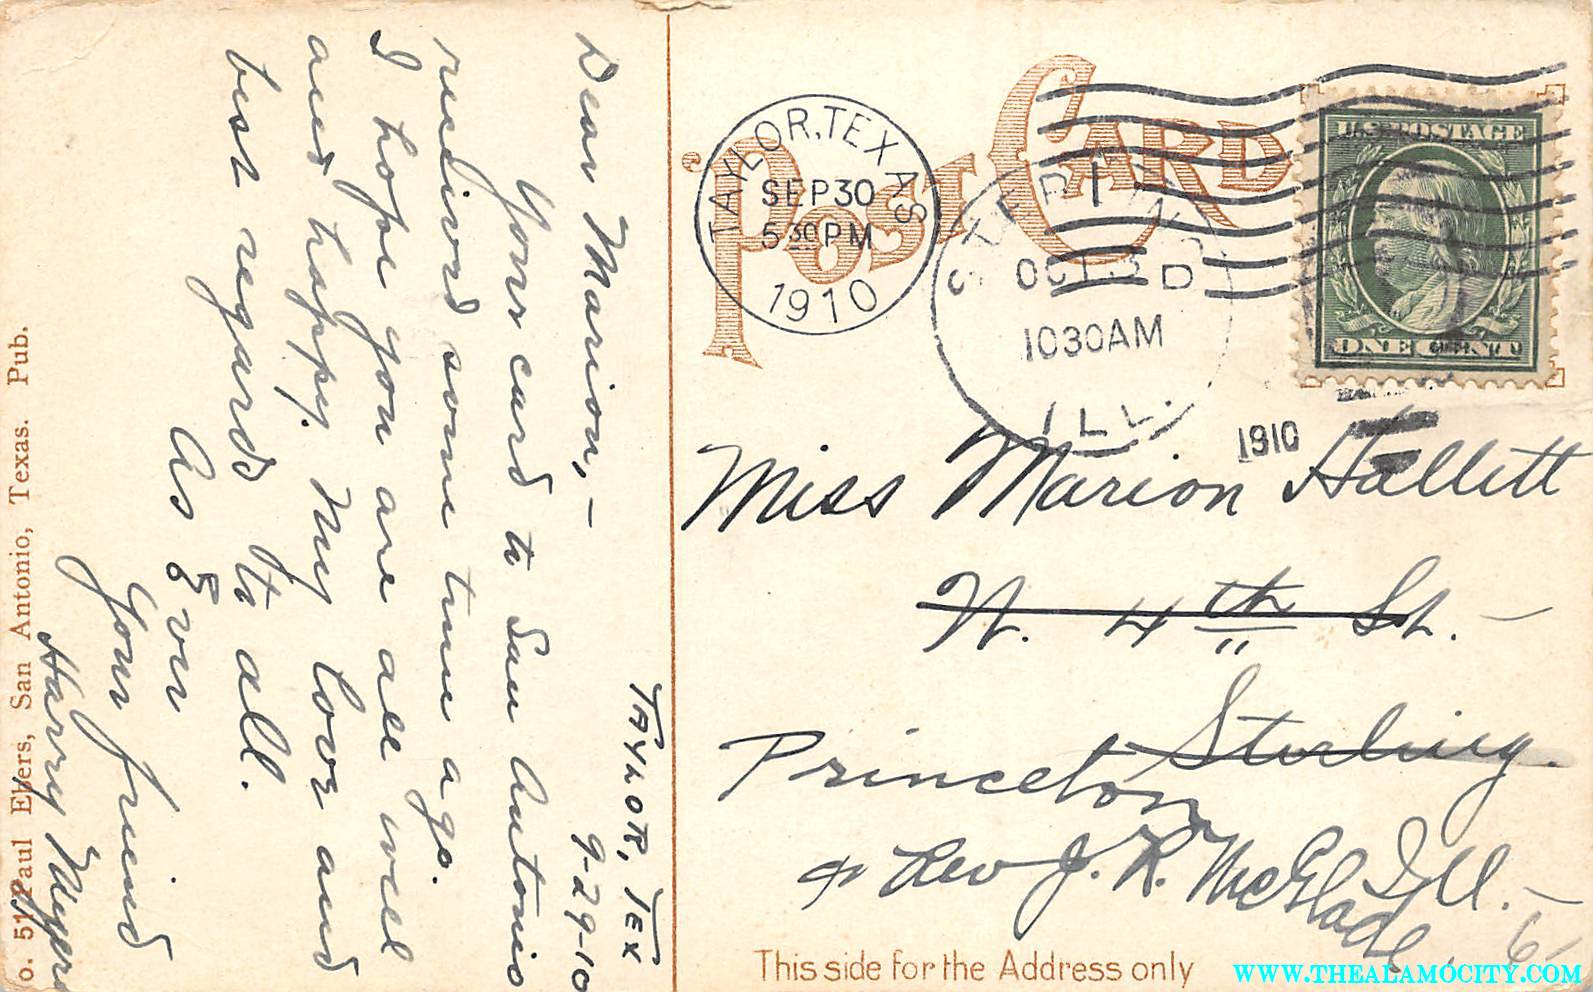 TAYLOR, TEX
9-29-10
Dear Marion,-
Your card to San Antonio
recieved some time ago.
I hope you are all well
and happy. My love and
best regards to all.
As Ever
Your friend
Harry Meyers
No. 51 Paul Ebers, San Antonio, Texas. Pub.
POST CARD
TAYLOR, TEXAS
SEP 30
5 30 PM
1910
STERLING
OCT 3 D
10 30 AM
ILL.
1910
U.S. POSTAGE
ONE CENT
Miss Marion Hallett
N. 4th St.-
Sterling
Princeton
Ill.-
c/o Rev J. R. McGlade
6
This side for the Address only
WWW.THEALAMOCITY.COM